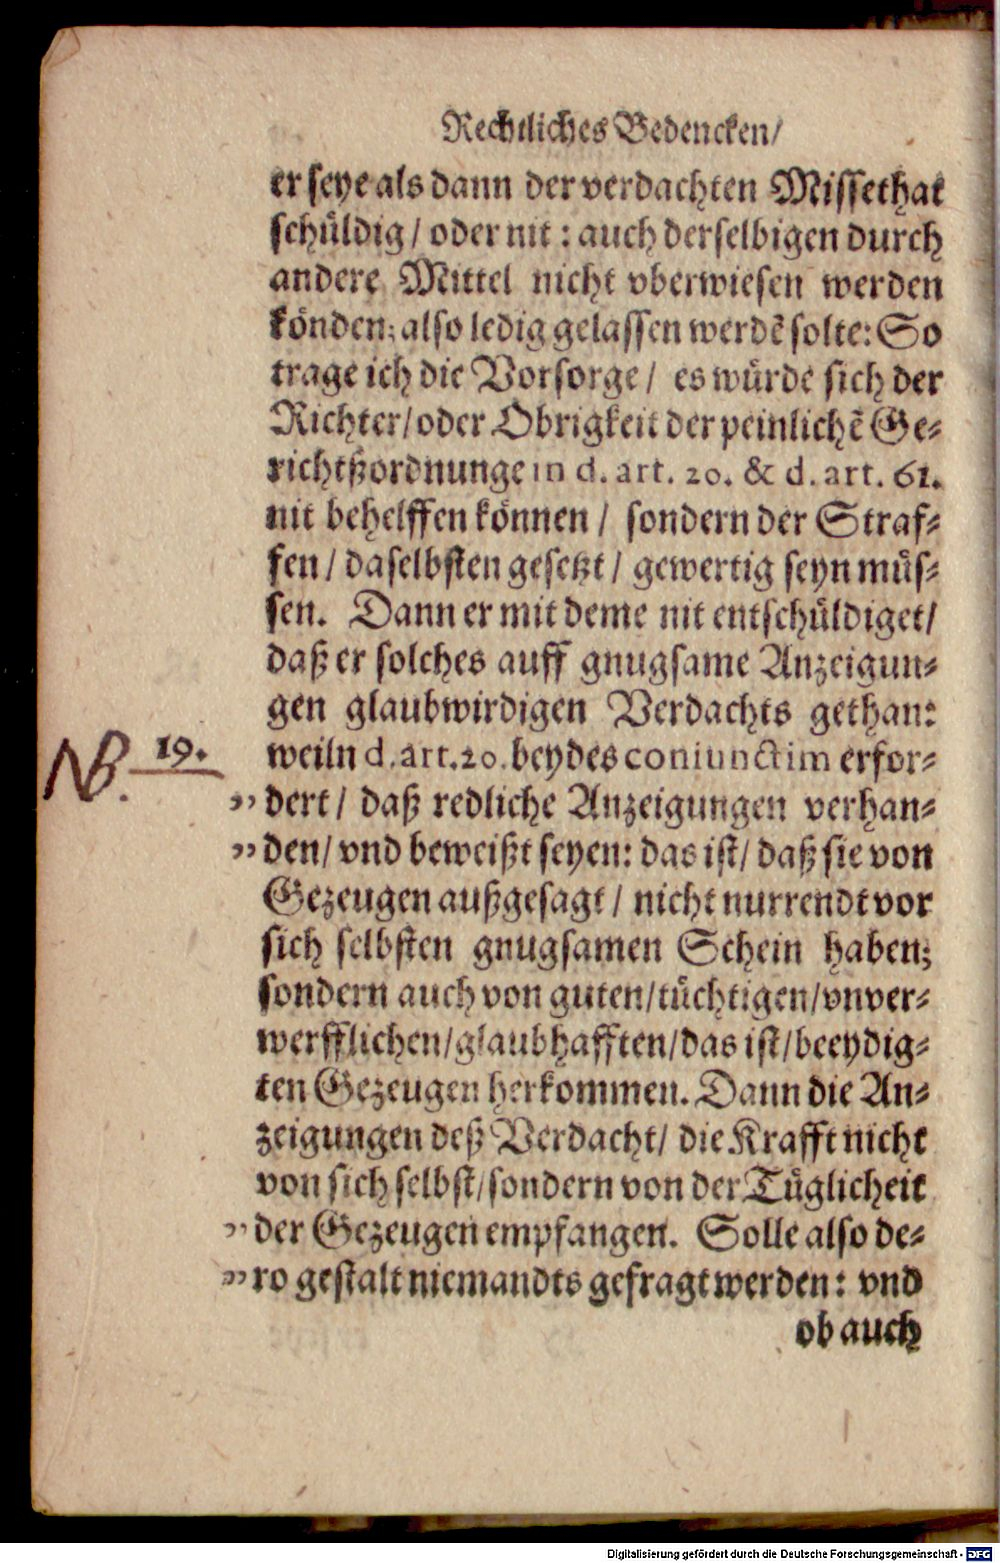 Rechtliches Bedencken/
er seye als dann der verdachten Missethat
schuͤldig / oder nit : auch derselbigen durch
andere Mittel nicht vberwiesen werden
koͤnden; also ledig gelassen werdẽ solte: So
trage ich die Vorsorge / es wuͤrde sich der
Richter/oder Obrigkeit der peinlichẽ Ge-
richtßordnunge in d. art. 20. & d. art. 61.
nit behelffen koͤnnen / sondern der Straf-
fen / daselbsten gesetzt / gewertig seyn muͤs-
sen. Dann er mit deme nit entschuͤldiget/
daß er solches auff gnugsame Anzeigun-
gen glaubwirdigen Verdachts gethan:
NB. 19. weiln d. art. 20. beydes coniunctim erfor-
„ dert / daß redliche Anzeigungen verhan-
„ den/ vnd beweißt seyen: das ist/ daß sie von
Gezeugen außgesagt / nicht nurrendt vor
sich selbsten gnugsamen Schein haben;
sondern auch von guten/tuͤchtigen/vnver-
werfflichen/glaubhafften/das ist/beeydig-
ten Gezeugen herkommen. Dann die An-
zeigungen deß Verdacht/ die Krafft nicht
von sich selbst/sondern von der Tuͤglicheit
„ der Gezeugen empfangen. Solle also de-
„ ro gestalt niemandts gefragt werden: vnd
ob auch
Digitalisierung gefördert durch die Deutsche Forschungsgemeinschaft - DFG